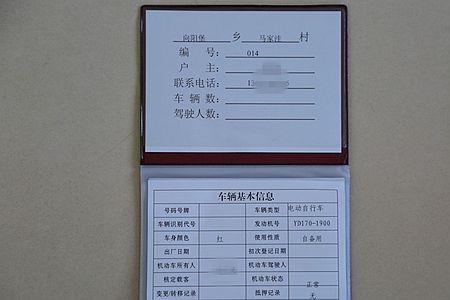 向阳堡 乡 马家洼 村
编 号： 014
户 主：
联系电话： 1
车 辆 数：
驾驶人数：
车辆基本信息
号码号牌 车辆类型 电动自行车
车辆识别代号 发动机号 YD170-1900
车身颜色 红 使用性质 自备用
出厂日期 初次登记日期
机动车所有人 机动车驾驶人
核定载客 机动车状态 正常
变更/转移记录 抵押记录 无